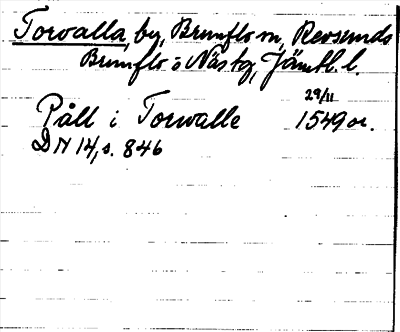 Torvalla, by, Brunflo sn, Revsunds
Brunflo o Näs tg, Jämtl. l.
29/11
Påll i Torwalle 1549 or.
DN 14, s. 846